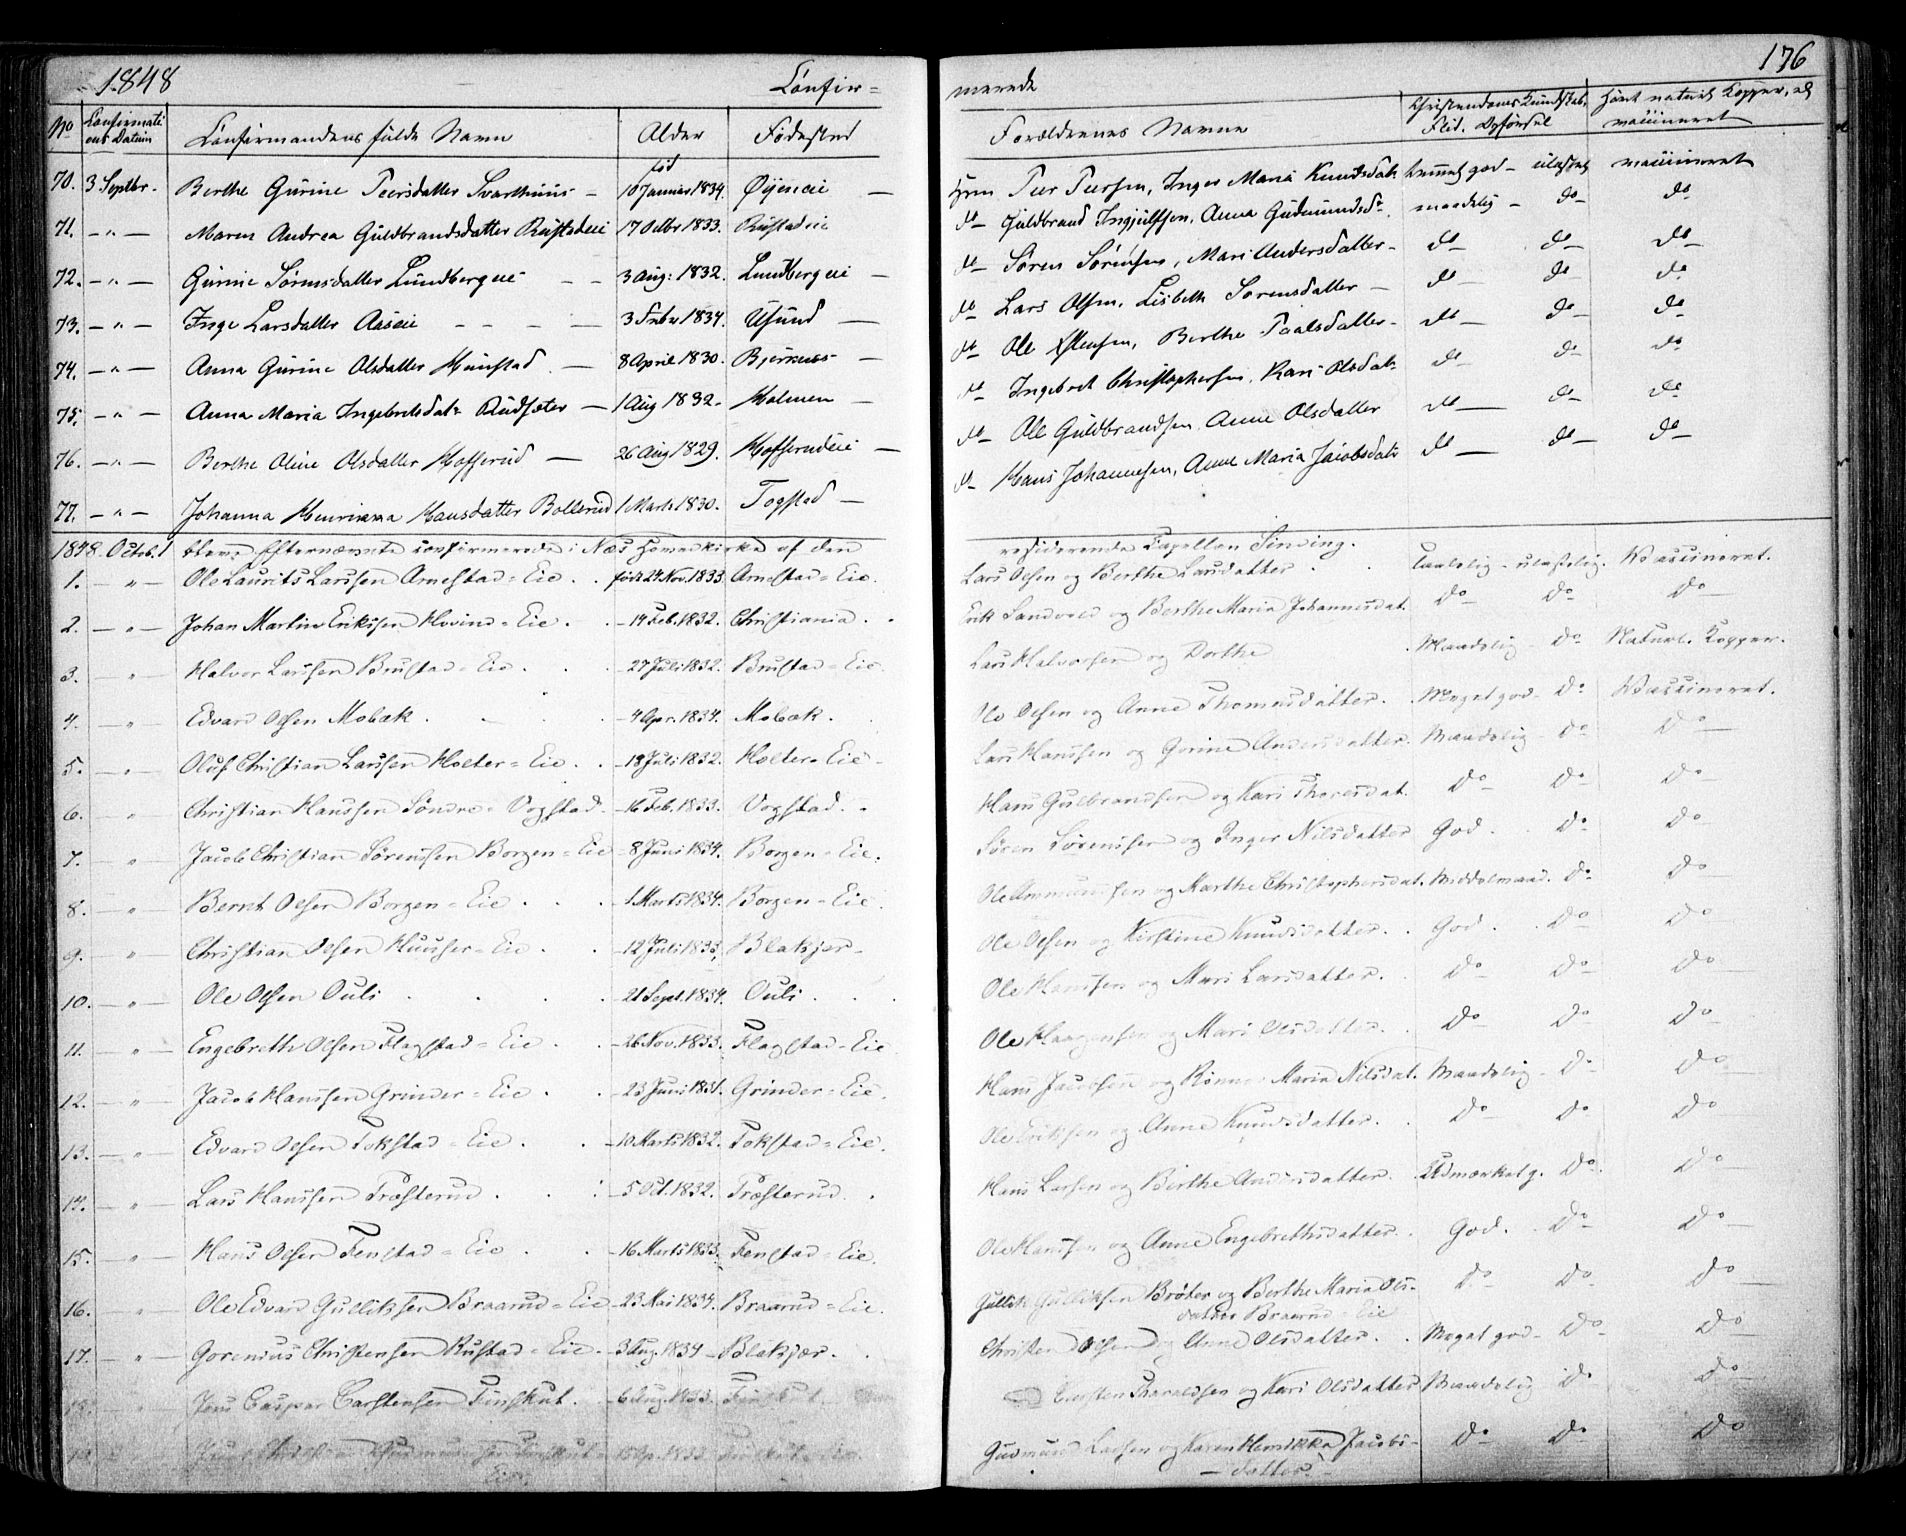 1848 Confir=
merede 176
No Confirmati
ons Datum Confirmandens fulde Navn Alder Fødested
Forældrenes Navne Christendoms Kundskab, Flid, Opførsel havt naturl Kopper, el vaccineret
70. 3 Septbr. Berthe Gurine Peersdatter Svarthuus - fød 10 Januar 1834. Øyeneie - Hmn Peer Peersen, Inger Maria Knudsdatr meget god - ulastet vaccineret
71. - " - Maren Andrea Guldbrandsdatter Rustadeie 17 Octbr 1833. Rustadeie do Guldbrand Ingjulfsen, Anna Gudmundsdr. maadelig - do - do
72. - " - Gurine Sørensdatter Lundbergeie - 3 Aug: 1832. Lundbergeie - do Søren Sørensen, Mari Andersdatter - do - do - do
73. - " - Inge Larsdatter Aaseie - 3 Febr 1834. Usund - do Lars Olsen, Lisbeth Sørensdatter - do - do - do
74. - " - Anna Gurine Olsdatter Hunstad - 8 April 1830. Bjerknes - do Ole Ølensen, Berthe Paalsdatter - do - do - do
75. - " - Anna Maria Ingebretsdatr Rudsæter - 1 Aug 1832. Holmen - do Ingebret Christophersen, Kari Olsdatr do - do - do
76. - " - Berthe Oline Olsdatter Hofferud - 26 Aug 1829. Hofferudeie - do Ole Guldbrandsen, Anne Olsdatter do - do - do
77. - " - Johanna Henrikka Hansdatter Bollerud 1 Marts 1830. Togstad - do Hans Johannesen, Anne Maria Jacobsdatr do - do - do
1848. Octob. 1 bleve Efternævnte confirmerede i Næs Hovedkirke af den residerende Capellan Sinding.
1. - " - Ole Laurits Larssen Arnestad=Eie. . født 24 Nov. 1833. Arnestad=Eie. Lars Olsen og Berthe Larsdatter . . Taalelig - ulastelig. Vaccineret.
2. - " - Johan Martin Eriksen Hovind=Eie. . - 19 Feb. 1832. Christiania. . Erik Sandvold og Berthe Maria Johannesdat. Do - Do - Do
3. - " - Halvor Larssen Brustad=Eie. . - 27 Juli 1832. Brustad=Eie. Lars Halvorsen og Dorthe . Maadelig - Do Naturl. Kopper.
4. - " - Edvard Olsen Mobæk. - 4 Apr. 1834. Mobæk. . Ole Olsen og Anne Thomasdatter. . Meget god - Do Vaccineret.
5. - " - Oluf Christian Larssen Holter=Eie. . - 18 Juli 1832. Holter=Eie - Lars Hanssen og Gorine Andersdatter. Maadelig - Do Do
6. - " - Christian Hanssen Søndre=Vogstad. - 16 Feb. 1833. Vogstad. . Hans Gulbrandsen og Kari Thoresdat. Do - Do Do
7. - " - Jacob Christian Sørensen Borgen=Eie - 8 Juni 1834. Borgen=Eie. Søren Sørenssen og Inger Nilsdatter God. . Do Do
8. - " - Bernt Olsen Borgen=Eie. . . - 1 Marts 1834. Borgen=Eie. Ole Ammundsen og Marthe Christophersdat. Middelmaad. Do Do
9. - " - Christian Olsen Huuser=Eie. . - 12 Juli 1833, Blakjer - Ole Olsen og Kirstine Knudsdatter. . God. . Do Do
10. - " - Ole Olsen Ouli . . . - 21 Sept. 1834. Ouli . . Ole Hanssen og Mari Larsdatter. . Do Do Do
11. - " - Engebreth Olsen Flagstad=Eie. . - 26 Nov. 1833. Flagstad=Eie Ole Haagensen og Mari Olsdatter. . Do Do Do
12. - " - Jacob Hanssen Grinder=Eie . . - 23 Juni 1831. Grinder=Eie. Hans Jacobsen og Rønne Maria Nilsdat. Maadelig - Do Do
13. - " - Edvard Olsen Tokstad=Eie. . - 10 Marts 1832. Tokstad=Eie. Ole Eriksen og Anne Knudsdatter. . Do Do Do
14. - " - Lars Hanssen Træsterud. . . - 5 Oct. 1832. Træsterud. . Hans Larsen og Berthe Andersdatter. . Udmærket g. Do. Do
15. - " - Hans Olsen Fenstad=Eie . . - 16 Marts 1833. Fenstad=Eie. Ole Hanssen og Anne Engebrethsdatter. . God. . Do Do
16. - " - Ole Edvard Gulliksen Braarud=Eie - 23 Mai 1834. Braarud=Eie. Gullik Gulliksen Brøter og Berthe Maria Ols-
datter Braarud=Eie Do Do Do
17. - " - Gorenius Christensen Rustad=Eie. - 3 Aug. 1834 - Blakjær. . Christen Olsen og Anne Olsdatter. . Meget god - Do Do
18. - " - Jens Caspar Carstensen Finskut. . - 6 Aug. 1833. Finskut. Carsten Tharaldsen og Kari Olsdatter Maadelig Do Do
19. Christian Gudmundsen Finskut= - Ap. 1833 Finskut=Eie. Gudmund Larsen og Karen Henrikka Jacobs-
Eie. - datter. - Do Do Do